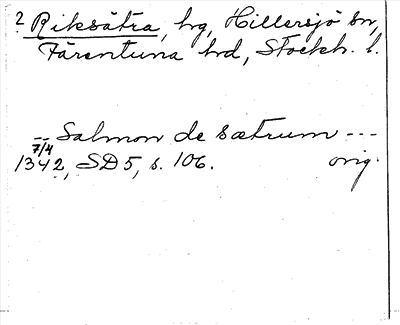 2 Riksätra, hg, Hillersjö sn,
Färentuna hd, Stockh. l.
-- Salmon de sætrum ---
7/4
1342, SD 5, s. 106. orig.